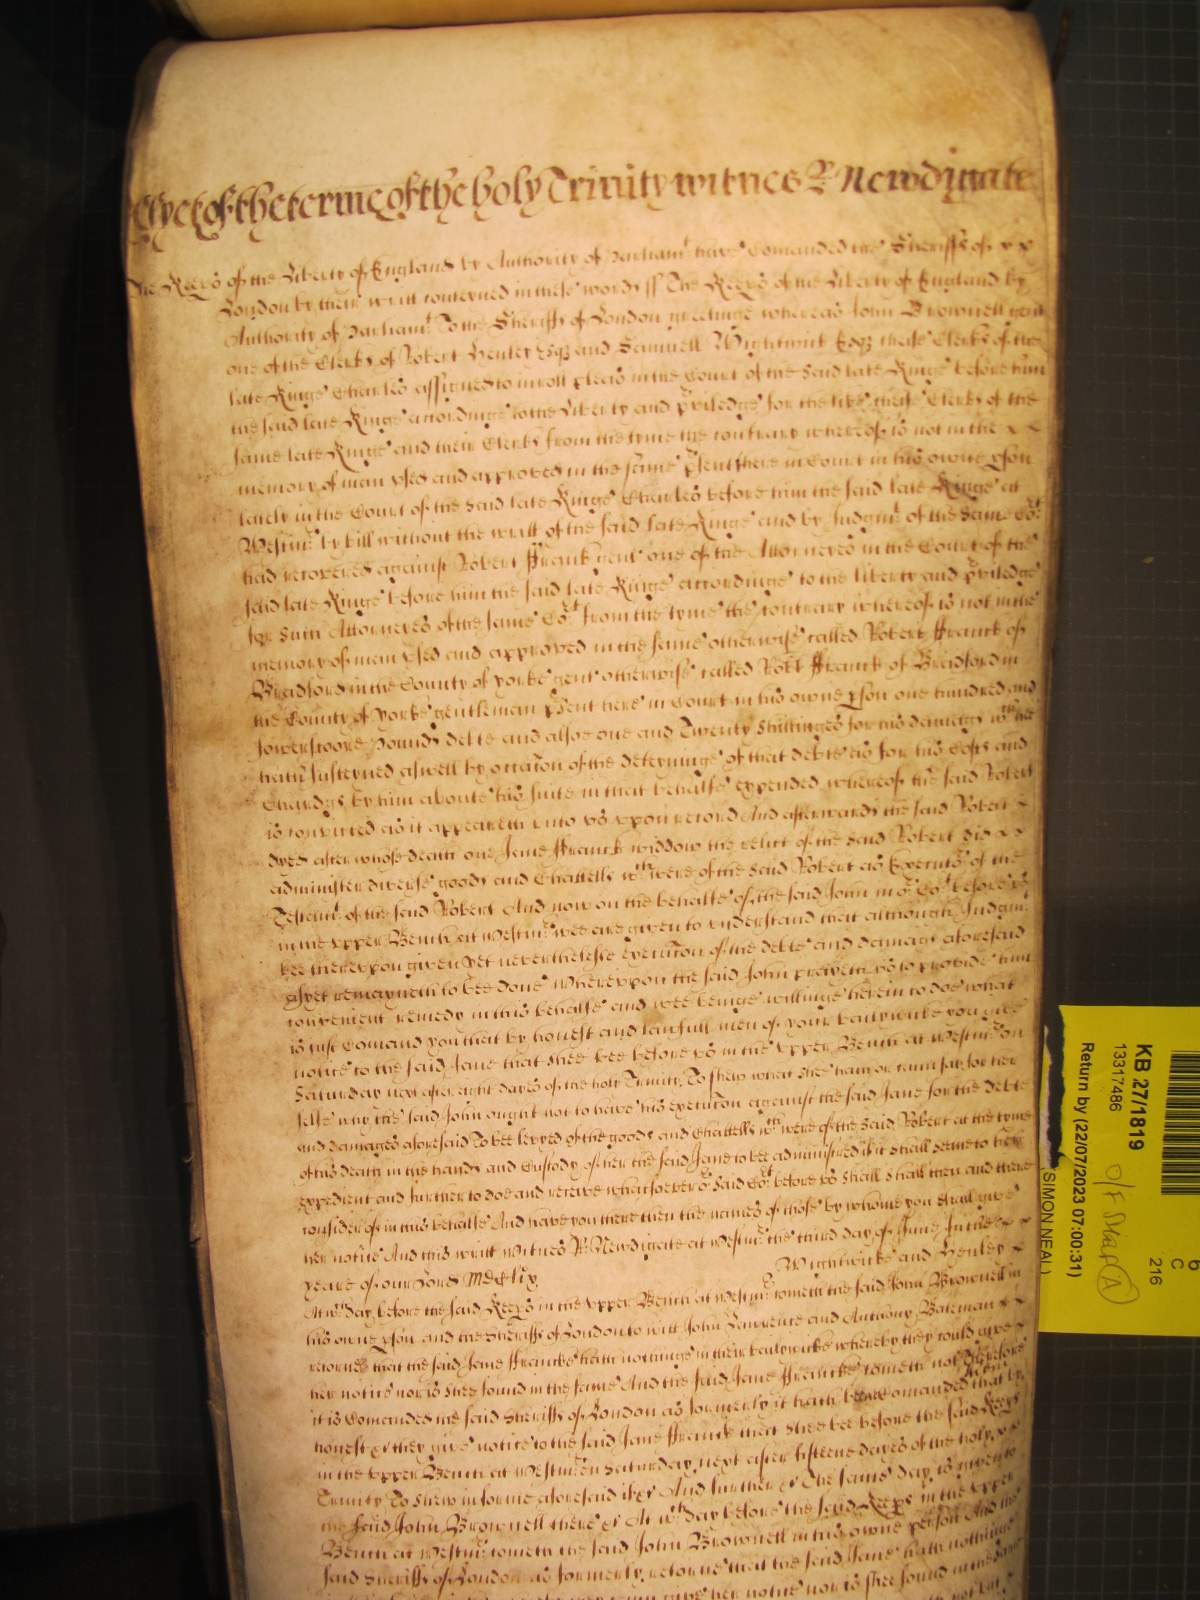 Yet of the terme of the holy Trinity witnes R Newdigate
The Keep's of the Liberty of England by Authority of Parliamt have Comanded the Sheriffs of x x
London by their writt conteyned in these words ss The Keep's of the Liberty of England by
Authority of Parliamt To the Sheriffs of London greetinge whereas John Brownell gent
one of the Clerks of Robert Henley Esqr and Samuell Wightwick Esqr cheife Clerks of the
late Kinge Charles assigned to inroll pleas in the Court of the said late Kinge before him
the said late Kinge accordinge to the Liberty and priviledge for the like cheife Clerks of the
same late Kinge and their Clerks from the tyme the contrary whereof is not in the x x
memory of man used and approved in the same present here in Court in his owne pson
lately in the Court of the said late Kinge Charles before him the said late Kinge at
Westmr by bill without the writt of the said late Kinge and by Judgmt of the same Cort
had recovered against Robert Franck gent one of the Attorneyes in the Court of the
said late Kinge before him the said late Kinge accordinge to the liberty and priviledge
for such Attorneyes of the same Cort from the tyme the contrary whereof is not in the
memory of man used and approved in the same otherwise called Robert Franck of
Bradford in the County of Yorke gent otherwise called Robt Franck of Bradford in
the County of Yorke gentleman present here in Court in his owne pson one hundred and
fowerscore pounds debte and alsoe one and Twenty shillinges for his damages wch hee
hath susteyned aswell by occacon of the deteyninge of that debte as for his Costs and
Chardgs by him aboute his suite in that behalfe expended whereof the said Robert
is convicted as it appeareth unto us uppon record And afterwards the said Robert x
dyed after whose death one Jane Franck widdow the relict of the said Robert did x x
administer diverse goods and Chattells wch were of the said Robert as Executor of the
Testamt of the said Robert And now on the behalfe of the said John in or Cort before us
in the upper Bench at Westmr wee are given to understand that although Judgmt
bee thereupon given yet neverthelesse execucon of the debte and damags aforesaid
as yet remayneth to bee done Whereupon the said John prayeth us to provide him
convenient remedy in this behalfe and wee beinge willinge herein to doe what
is just Comand you that by honest and lawfull men of your bailywicke you give
notice to the said Jane that shee bee before us in the upper Bench at Westmr on
Saturday next after eight dayes of the holy Trinity To shew what shee hath or can say for her
selfe why the said John ought not to have his execucon against the said Jane for the debte
and damages aforesaid To bee levyed of the goods and Chattells wch were of the said Robert at the tyme
of his death in the hands and Custody of her the said Jane to bee administred if it shall seeme to her
expedient and further to doe and receive whatsoever or said Cort before us shall shall then and there
consider of in this behalfe And have you there then the names of those by whome you shall give
her notice And this writt Witnes R Newdigate at Westmr the third day of June In the x x
yeare of our Lord MDClix
Wightwicke and Henley x
At wch day before the said Keep's in the upper Bench at Westmr cometh the said John Brownell in
his owne pson and the Sheriffs of London to witt John Lawrence and Anthony Bateman x x
retorned that the said Jane Francke hath nothinge in their bailywicke whereby they could give x
her notice nor is shee found in the same And the said Jane Francke cometh not Therefore
it is Comanded the said Sheriffs of London as formerly it hath beene comanded them that by
honest &c they give notice to the said Jane Franck that shee bee before the said Keep's
in the upper Bench at Westmr on Saturday next after fifteene dayes of the holy x x
Trinity To shew in forme aforesaid if &c And further &c The same day is given to
the said John Brownell there &c At wch day before the said Keep's in the upper
Bench at Westmr cometh the said John Brownell in his owne person And the
said Sheriffs of London as formerly retorne that the said Jane hath nothinge
give her notice nor is shee found in the same
KB 27/1819
13317486
Return by (22/07/2023 07:00:31)
(SIMON NEAL)
6
C
216